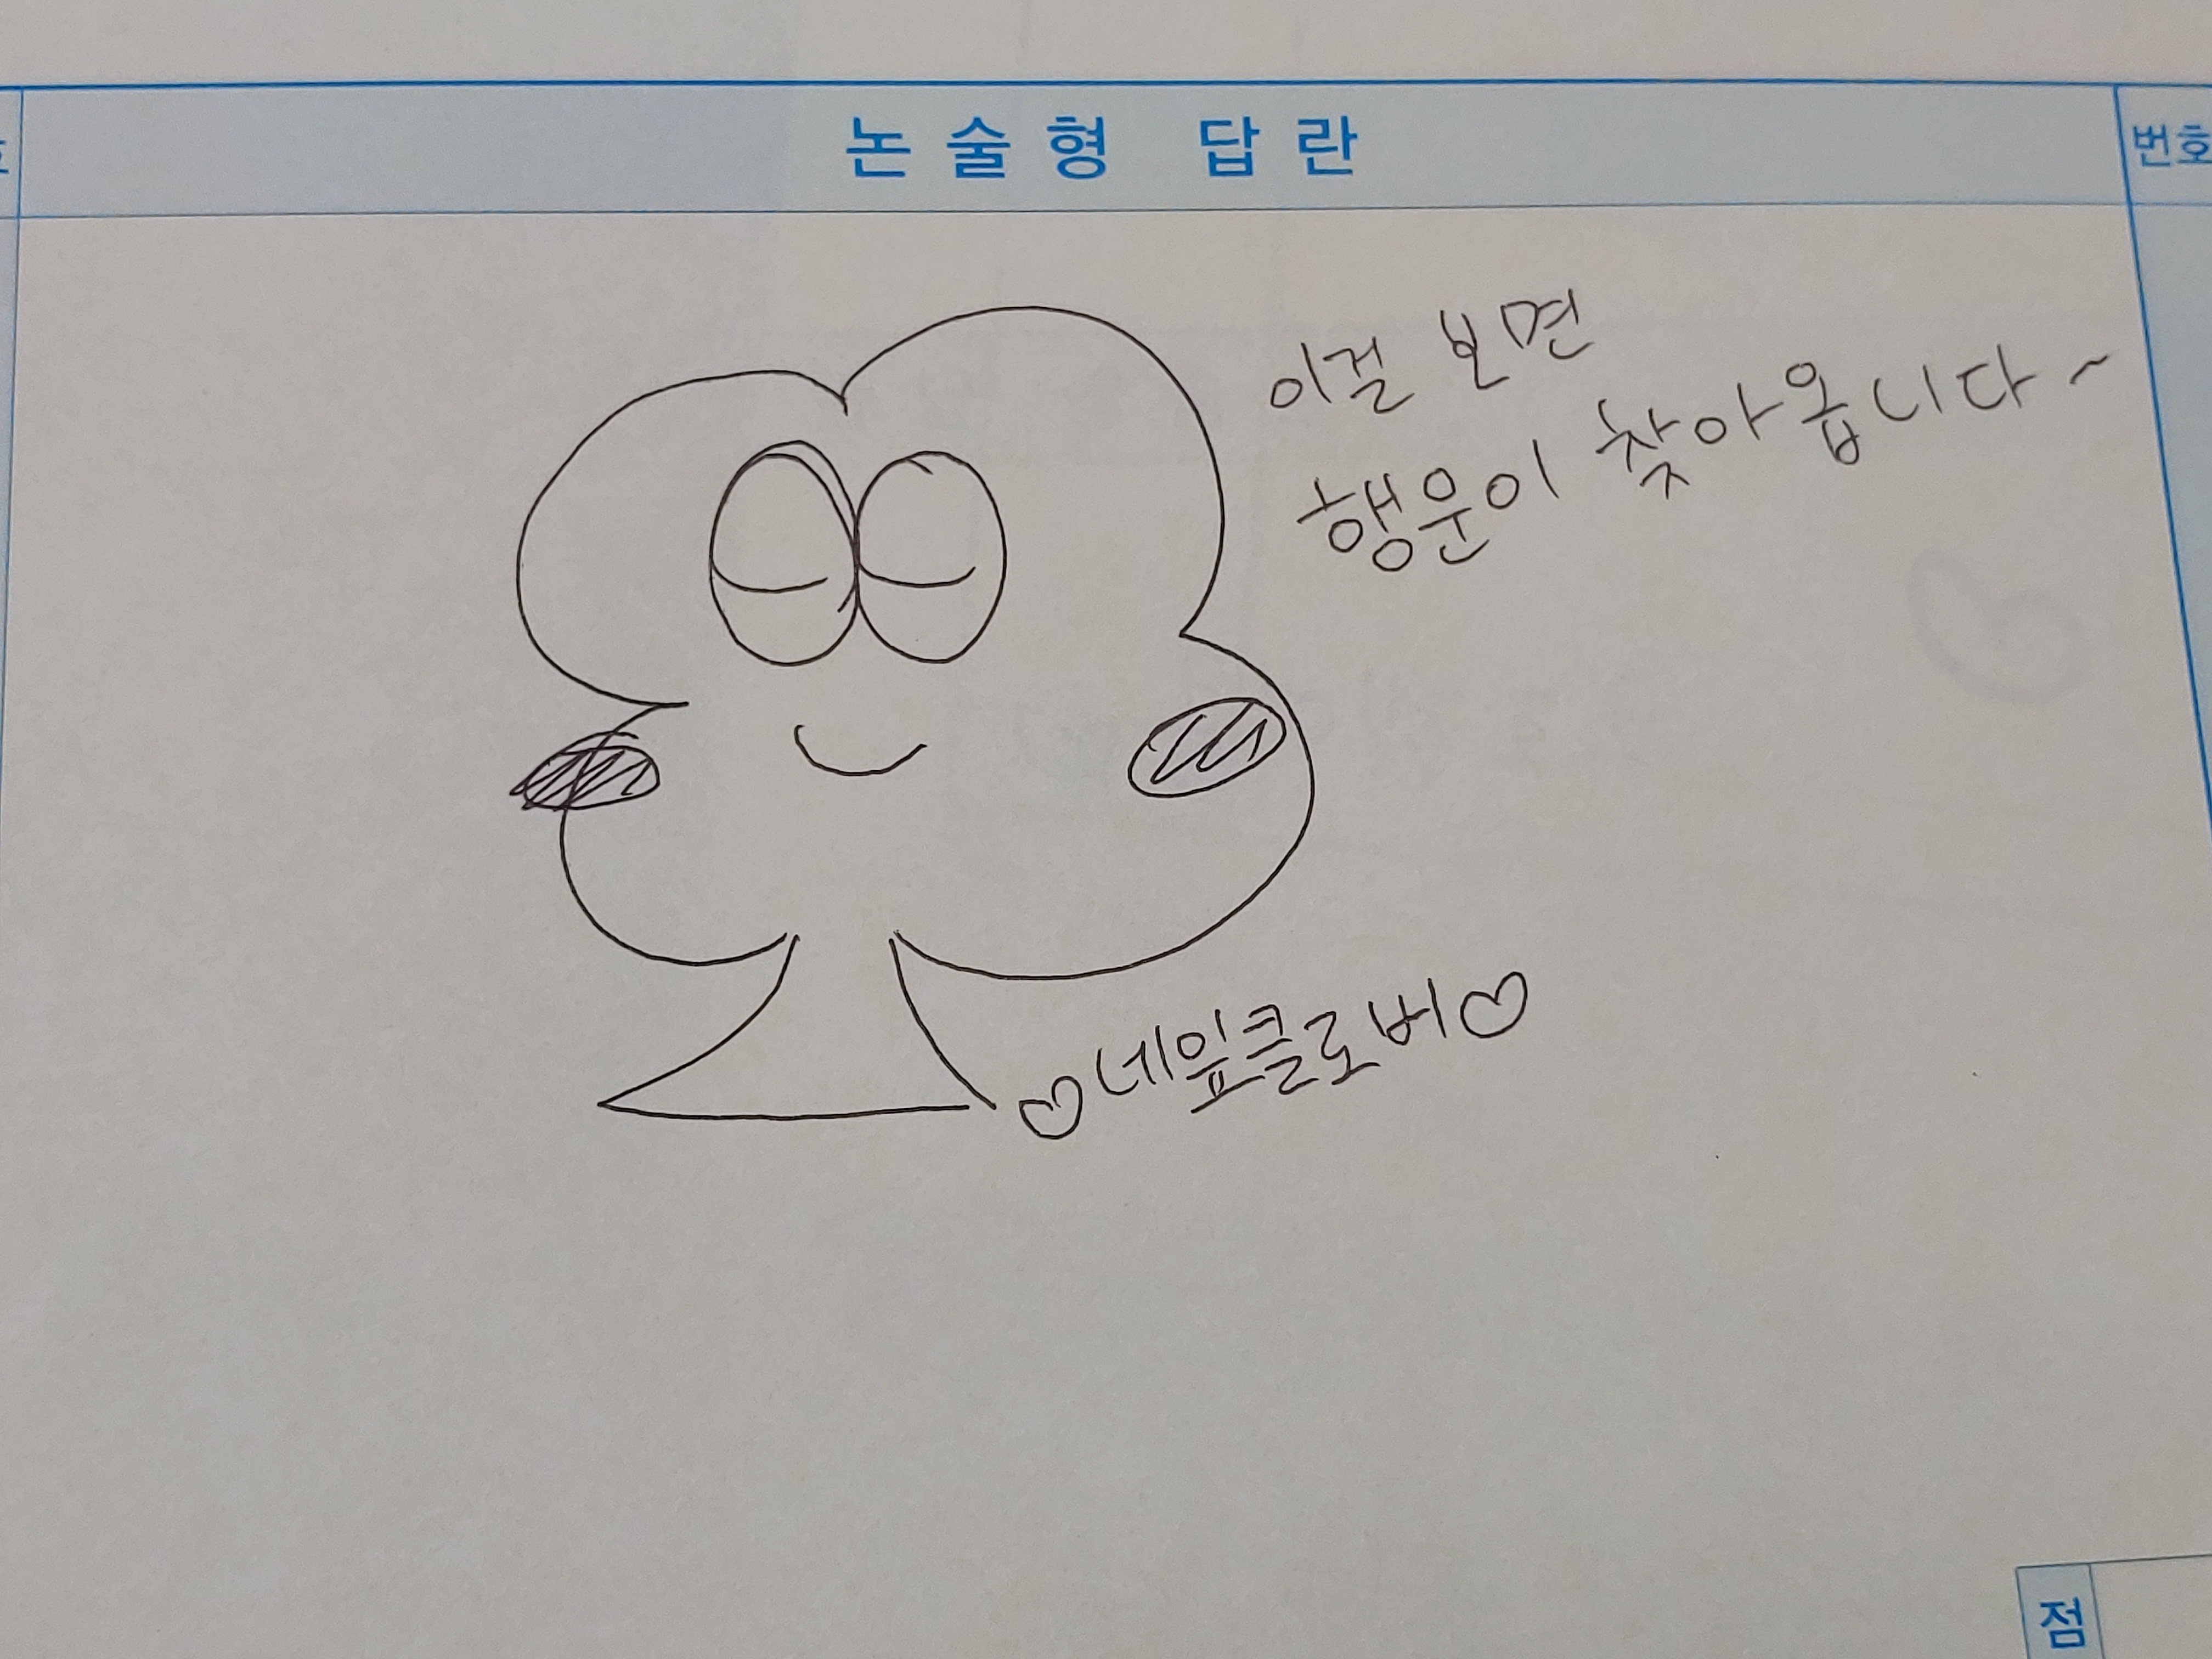 논술형 답란
번호
이걸 보면
행운이 찾아옵니다~
♡네잎클로버♡
점